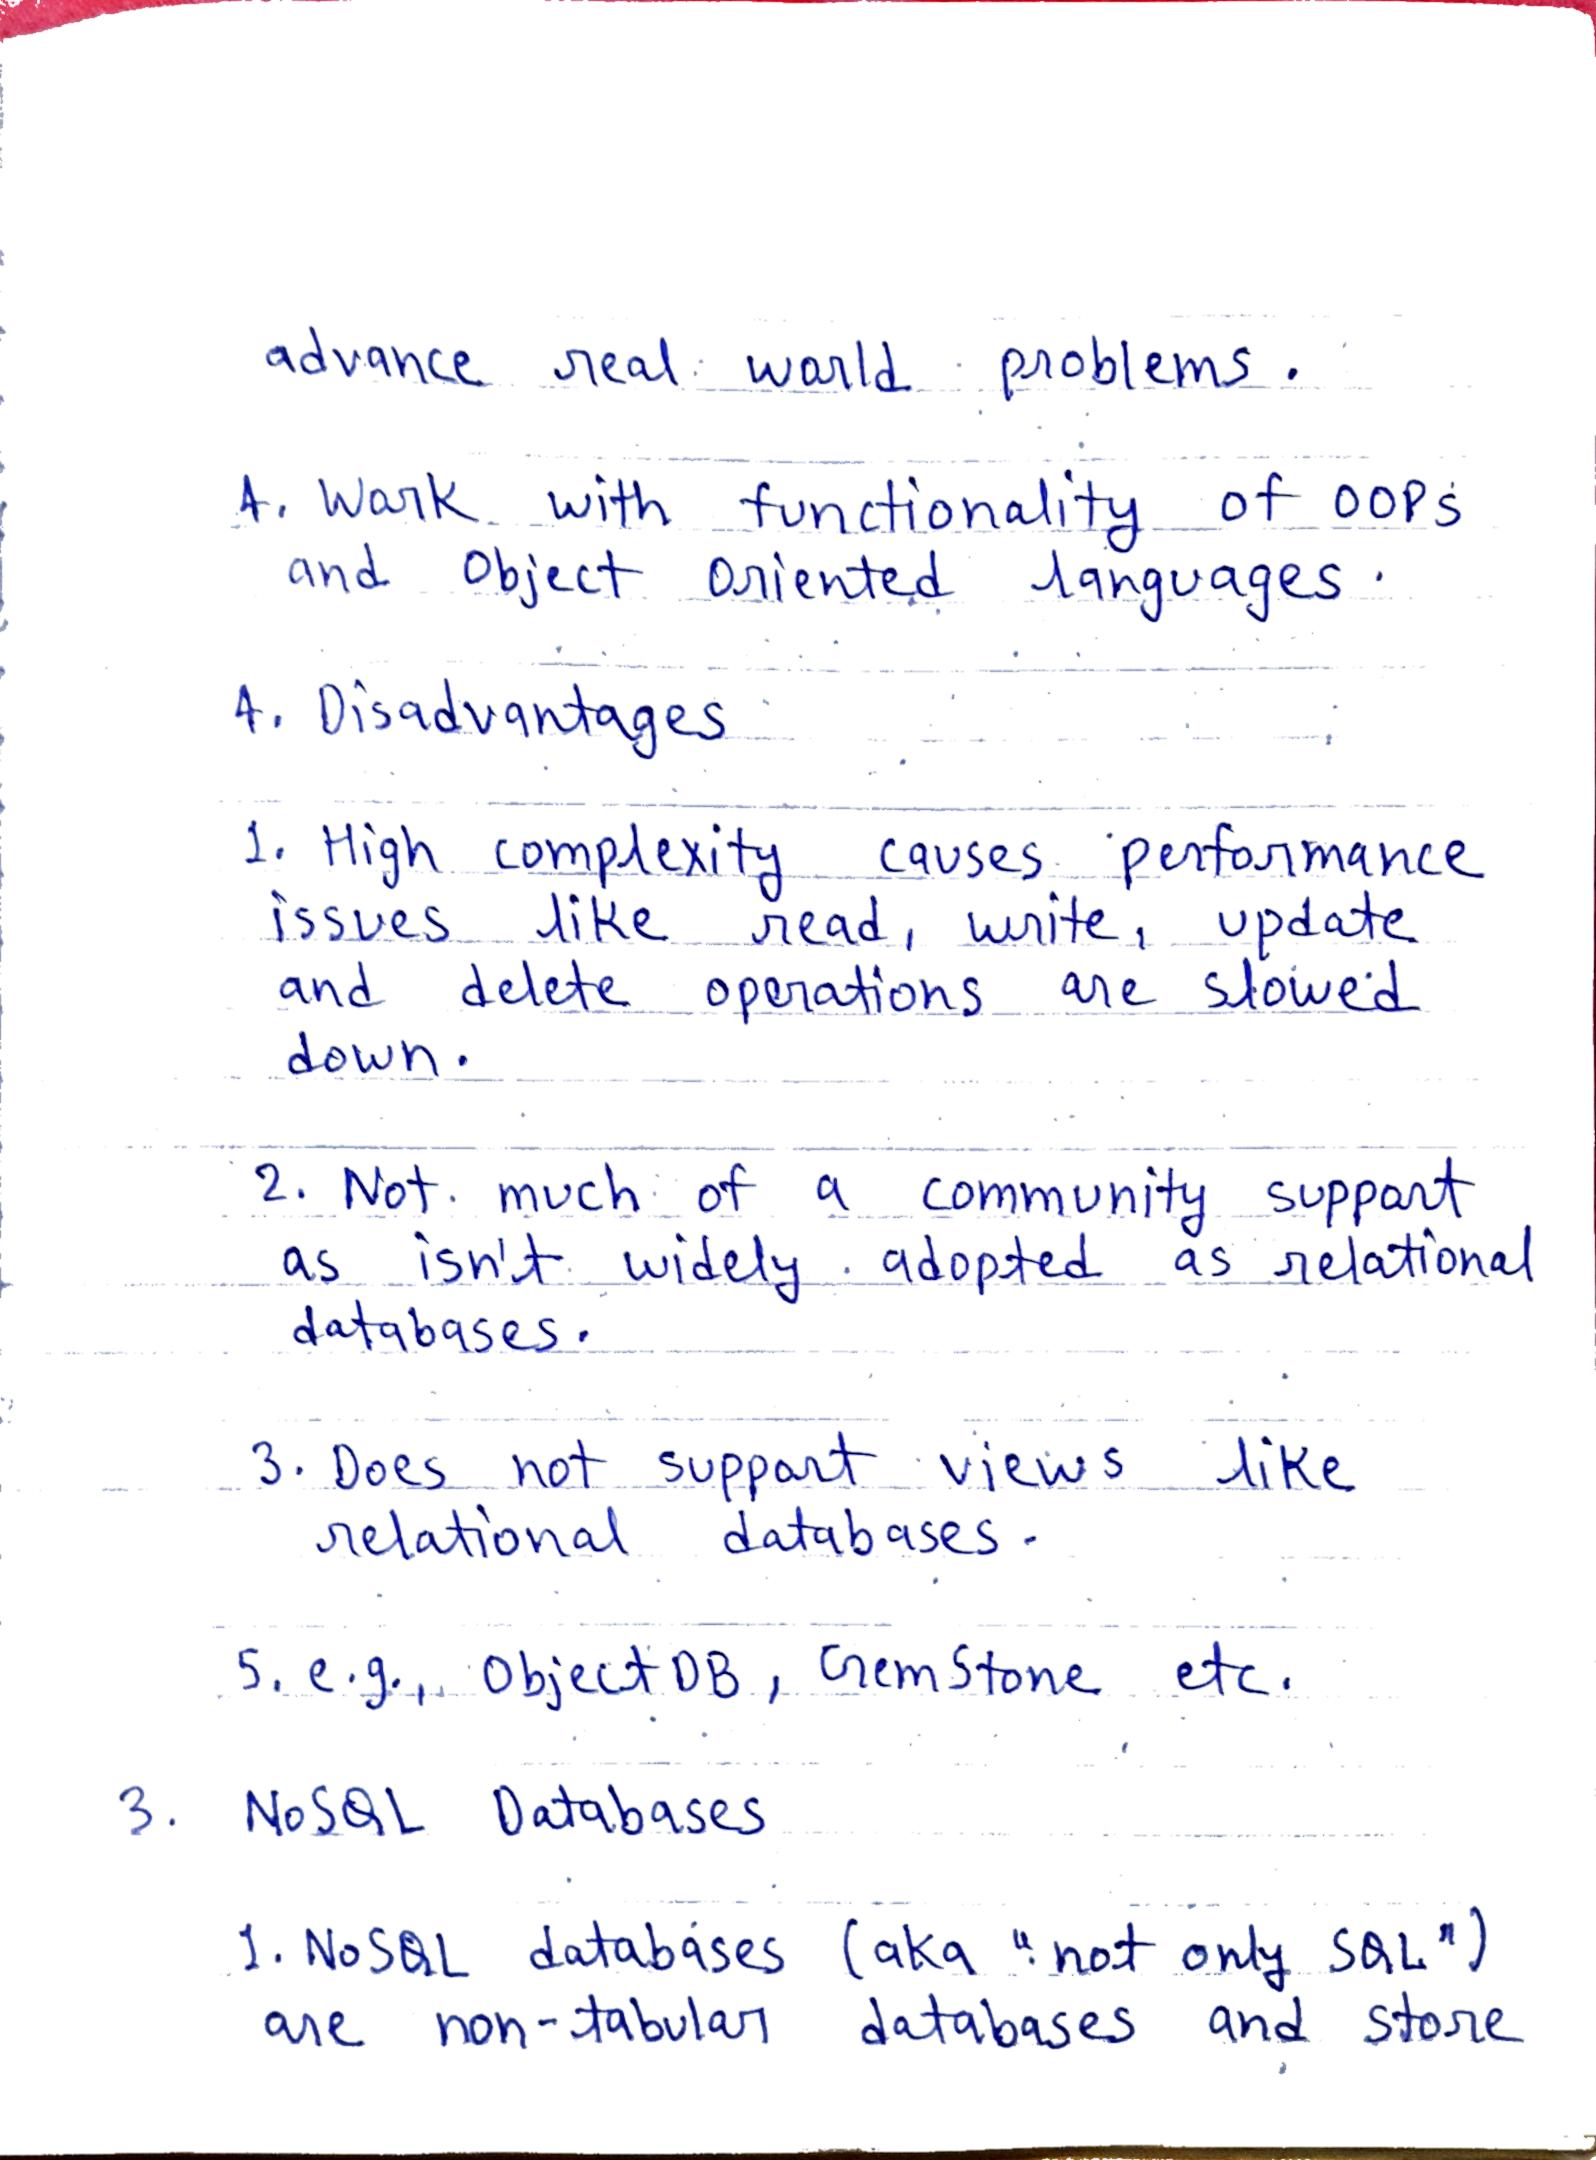 advance real world problems.
4. Work with functionality of OOPs
and Object Oriented languages.
4. Disadvantages
1. High complexity causes performance
issues like read, write, update
and delete operations are slowed
down.
2. Not much of a community support
as isn't widely adopted as relational
databases.
3. Does not support views like
relational databases.
5. e.g., ObjectDB, GemStone etc.
3. NoSQL Databases
1. NoSQL databases (aka "not only SQL")
are non-tabular databases and store